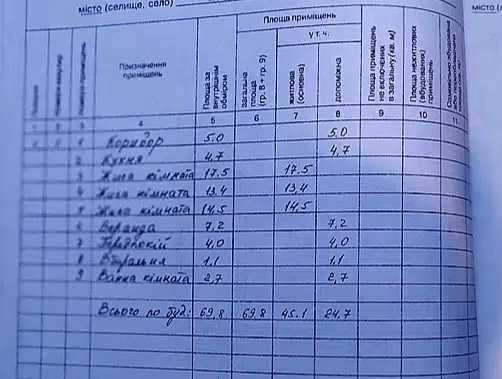 місто (селище, село)
місто (с
Площа приміщень
у т. ч.
Призначення приміщень
Площа за внутрішнім обміром
загальна площа (гр. 8 + гр. 9)
житлова (основна)
допоміжна
Площа приміщень не включених в загальну (кв. м)
Площа нежитлових (вбудованих) приміщень
4 5 6 7 8 9 10 11
1 Коридор 5.0 5.0
2 Кухня 4,7 4,7
3 Жила кімната 17.5 17.5
4 Жила кімната 13,4 13,4
5 Жила кімната 14,5 14,5
6 Веранда 7,2 7,2
7 Передпокій 4,0 4,0
8 Вбиральня 1,1 1,1
9 Ванна кімната 2,7 2,7
Всього по буд: 69,8 69,8 45.1 24.7